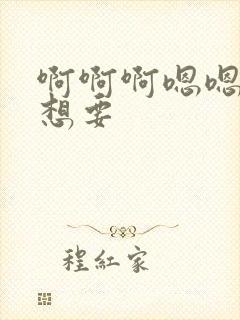 啊啊啊嗯嗯
想要
程红家